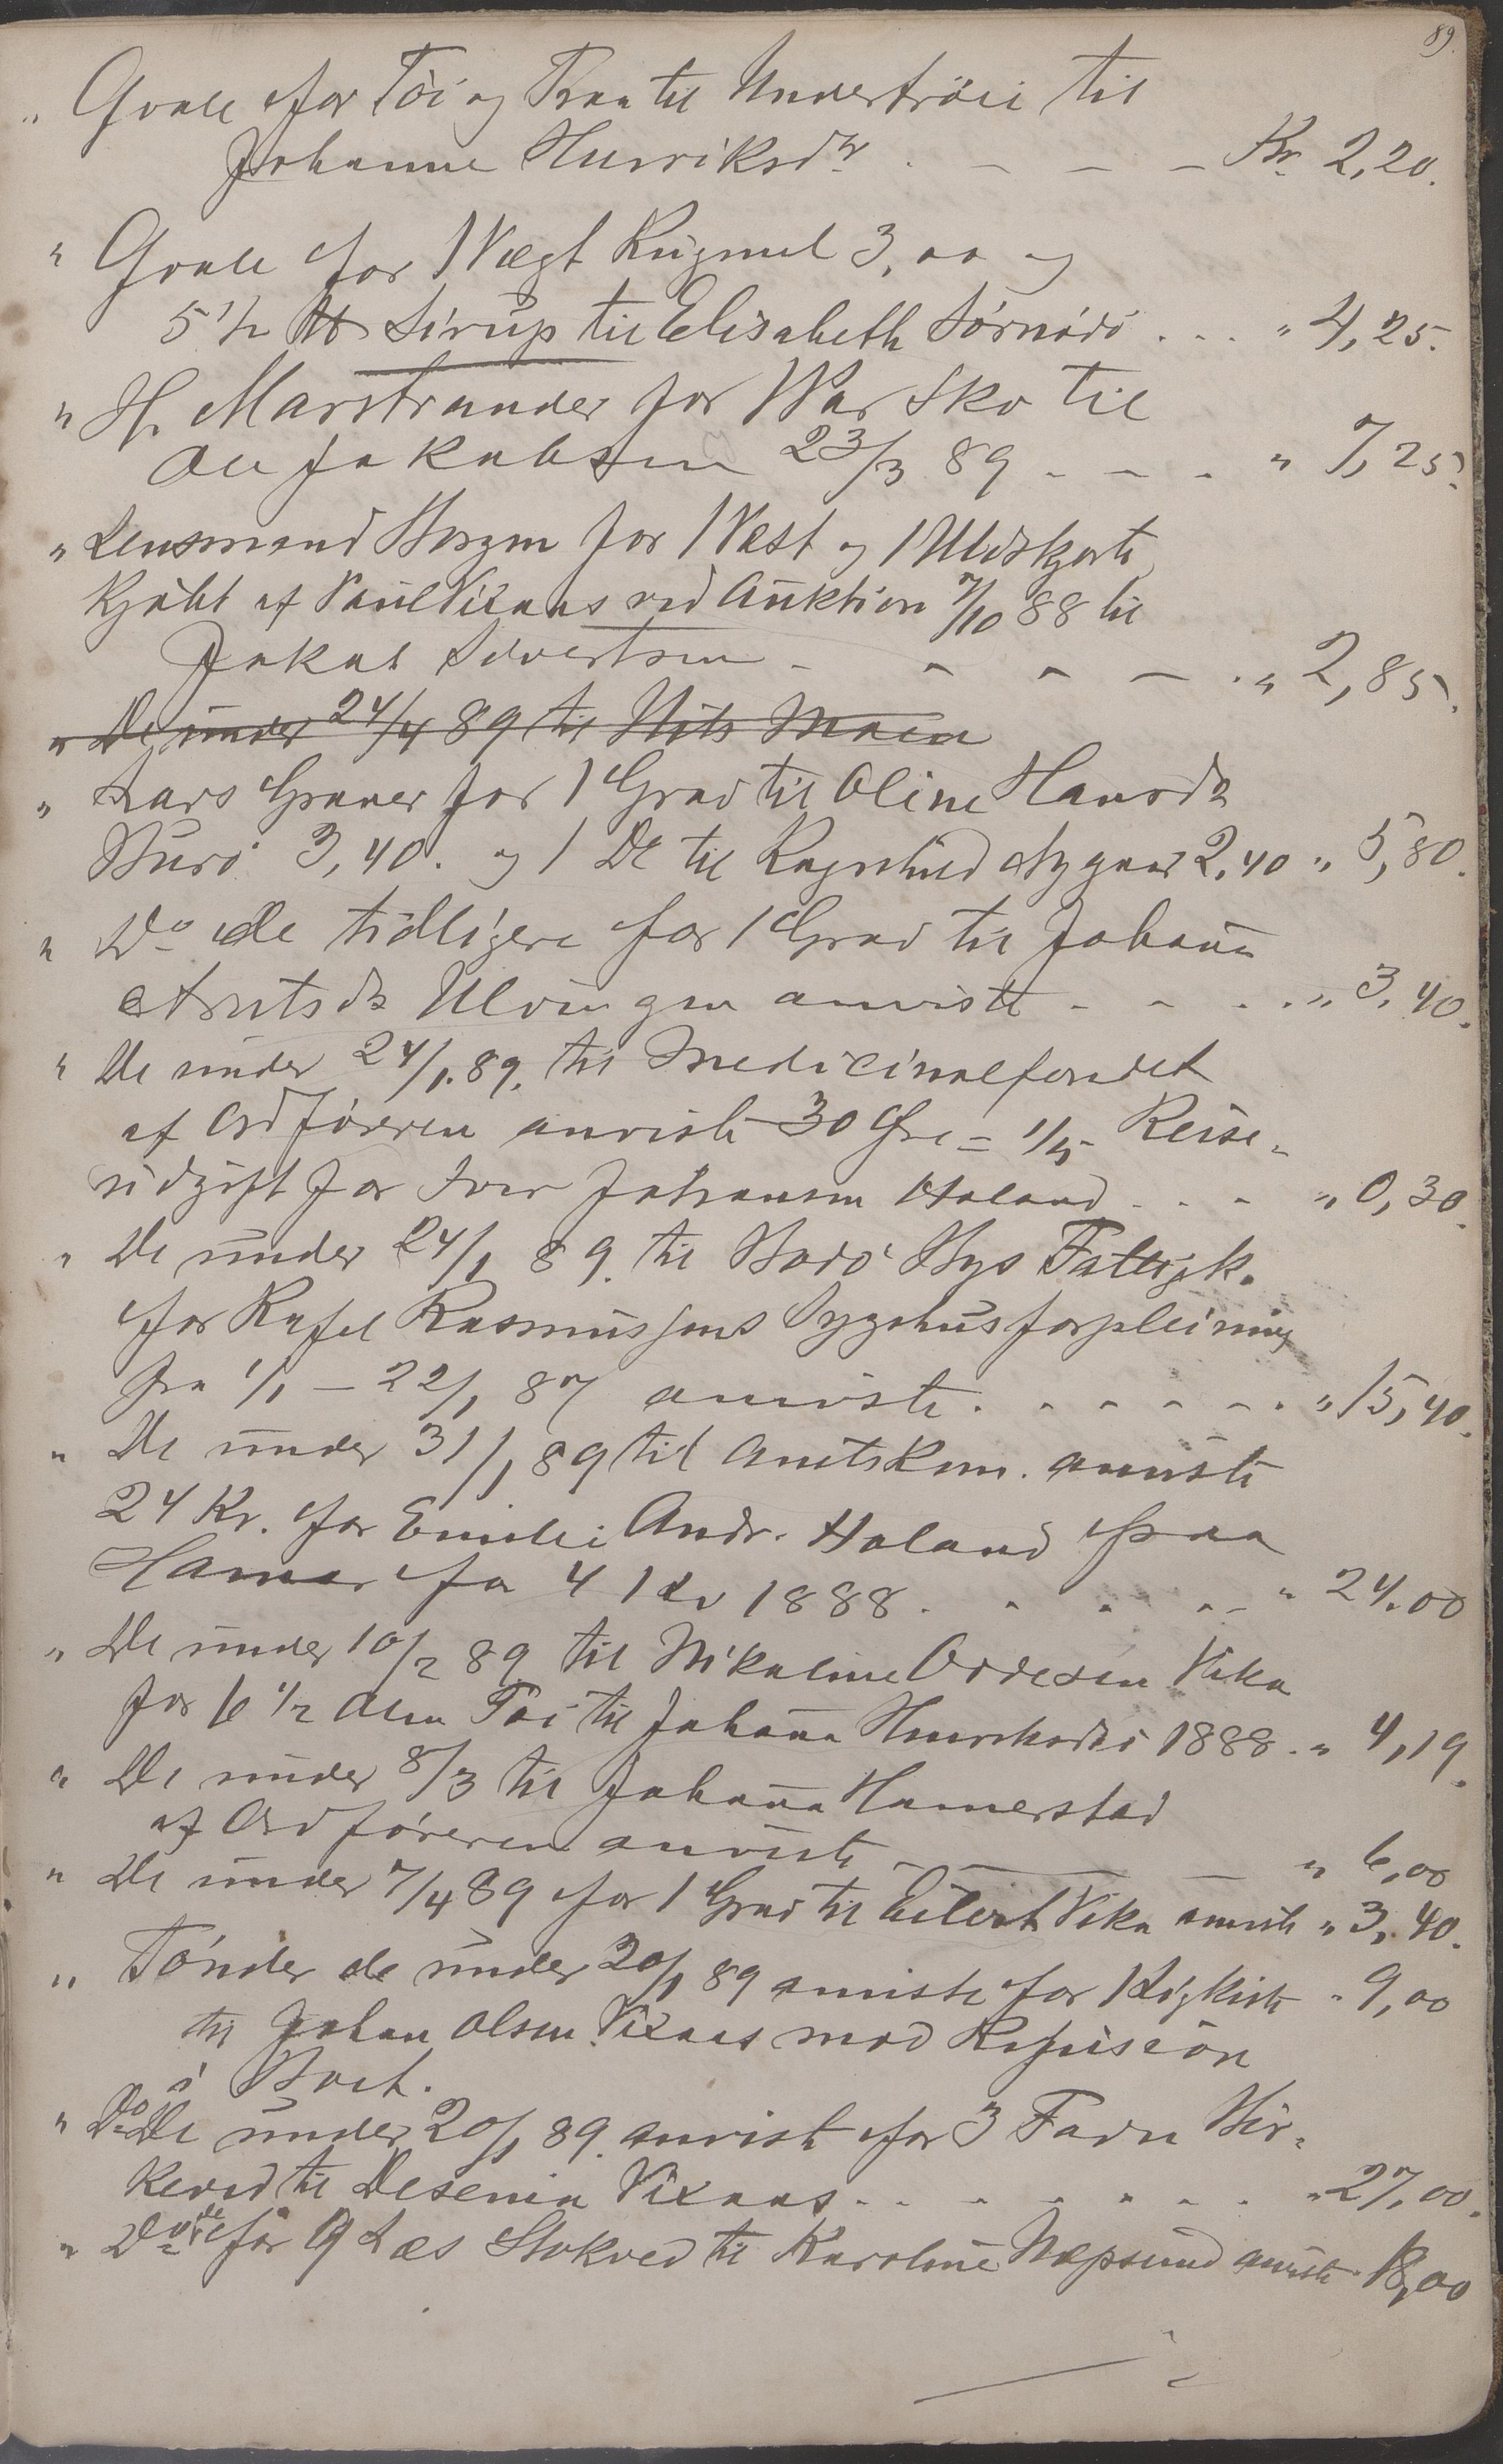 89.
" Qvale for Töi og Traa til Undertröie til
Johanne Henriksdr. . - - - Kr. 2,20.
" Qvale for 1 Vægt Rugmel 3,00 og
5 1/2 ℔ Sirup til Elisabeth Sörnösi . . . " 4,25.
" H. Marstrander for 1 Par Sko til
Ole Jakobsen 23/3 89 - - - " 7,25.
" Lensmand Borgen for 1 Vest og 1 Uldskjorte
Kjöbt af Paul Vixaas ved Auktion 7/10 88 til
Jakob Sivertsen - - - - . " 2,85.
" De under 24/4 89 til Nils Moen
" Lars Graver for 1 Grav til Oline Hansdr
Burö 3,40. og 1 De til Ragnhild Nygaard 2,40 " 5,80.
" Do de tidligere for 1 Grav til Johanna
Arntsdr Ulvingen anviste - - . . " 3,40.
" De under 24/1. 89. til Medicinalfondet
af Ordföreren anviste 30 Öre = 1/5 Reise-
udgift for Iver Johansen Haland . . - " 0,30.
" De under 24/1 89. til Bodö Bys Fattigk.
for Rafel Rasmussens Sygehusforpleining
fra 1/1 - 22/1 87 anviste . . - - - - . " 15,40.
" De under 31/1 89 til Amtskom. anviste
24 Kr. for Emilie Andr. Haland fra
Hamar for 4 Kv 1888 . . . . - " 24.00
" De under 10/2 89 til Nikoline Ovdesen Vika
for 6 1/2 Alen Töi til Johanna Henriksdr i 1888 . " 4,19.
" De under 8/3 til Johanna Hamerstad
af Ordföreren anviste - - - - " 6,00
" De under 7/4 89 for 1 Grav til Eilert Vika anviste " 3,40.
" Tönder de under 20/1 89 anviste for 1 Ligkiste " 9,00
til Johan Olsen Vixaas mod Refusion
i Boet.
" Do De under 20/1 89. anviste for 3 Favn Bir-
keved til Desenia Vixaas . . - - - - . . " 27,00.
" Do de for 9 Læs Stokved til Karoline Næpsund anviste " 18,00